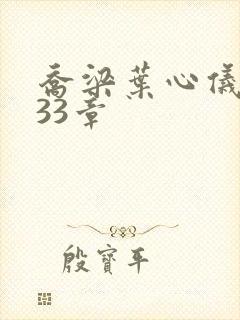 乔梁葉心儀
33章
殷寶平